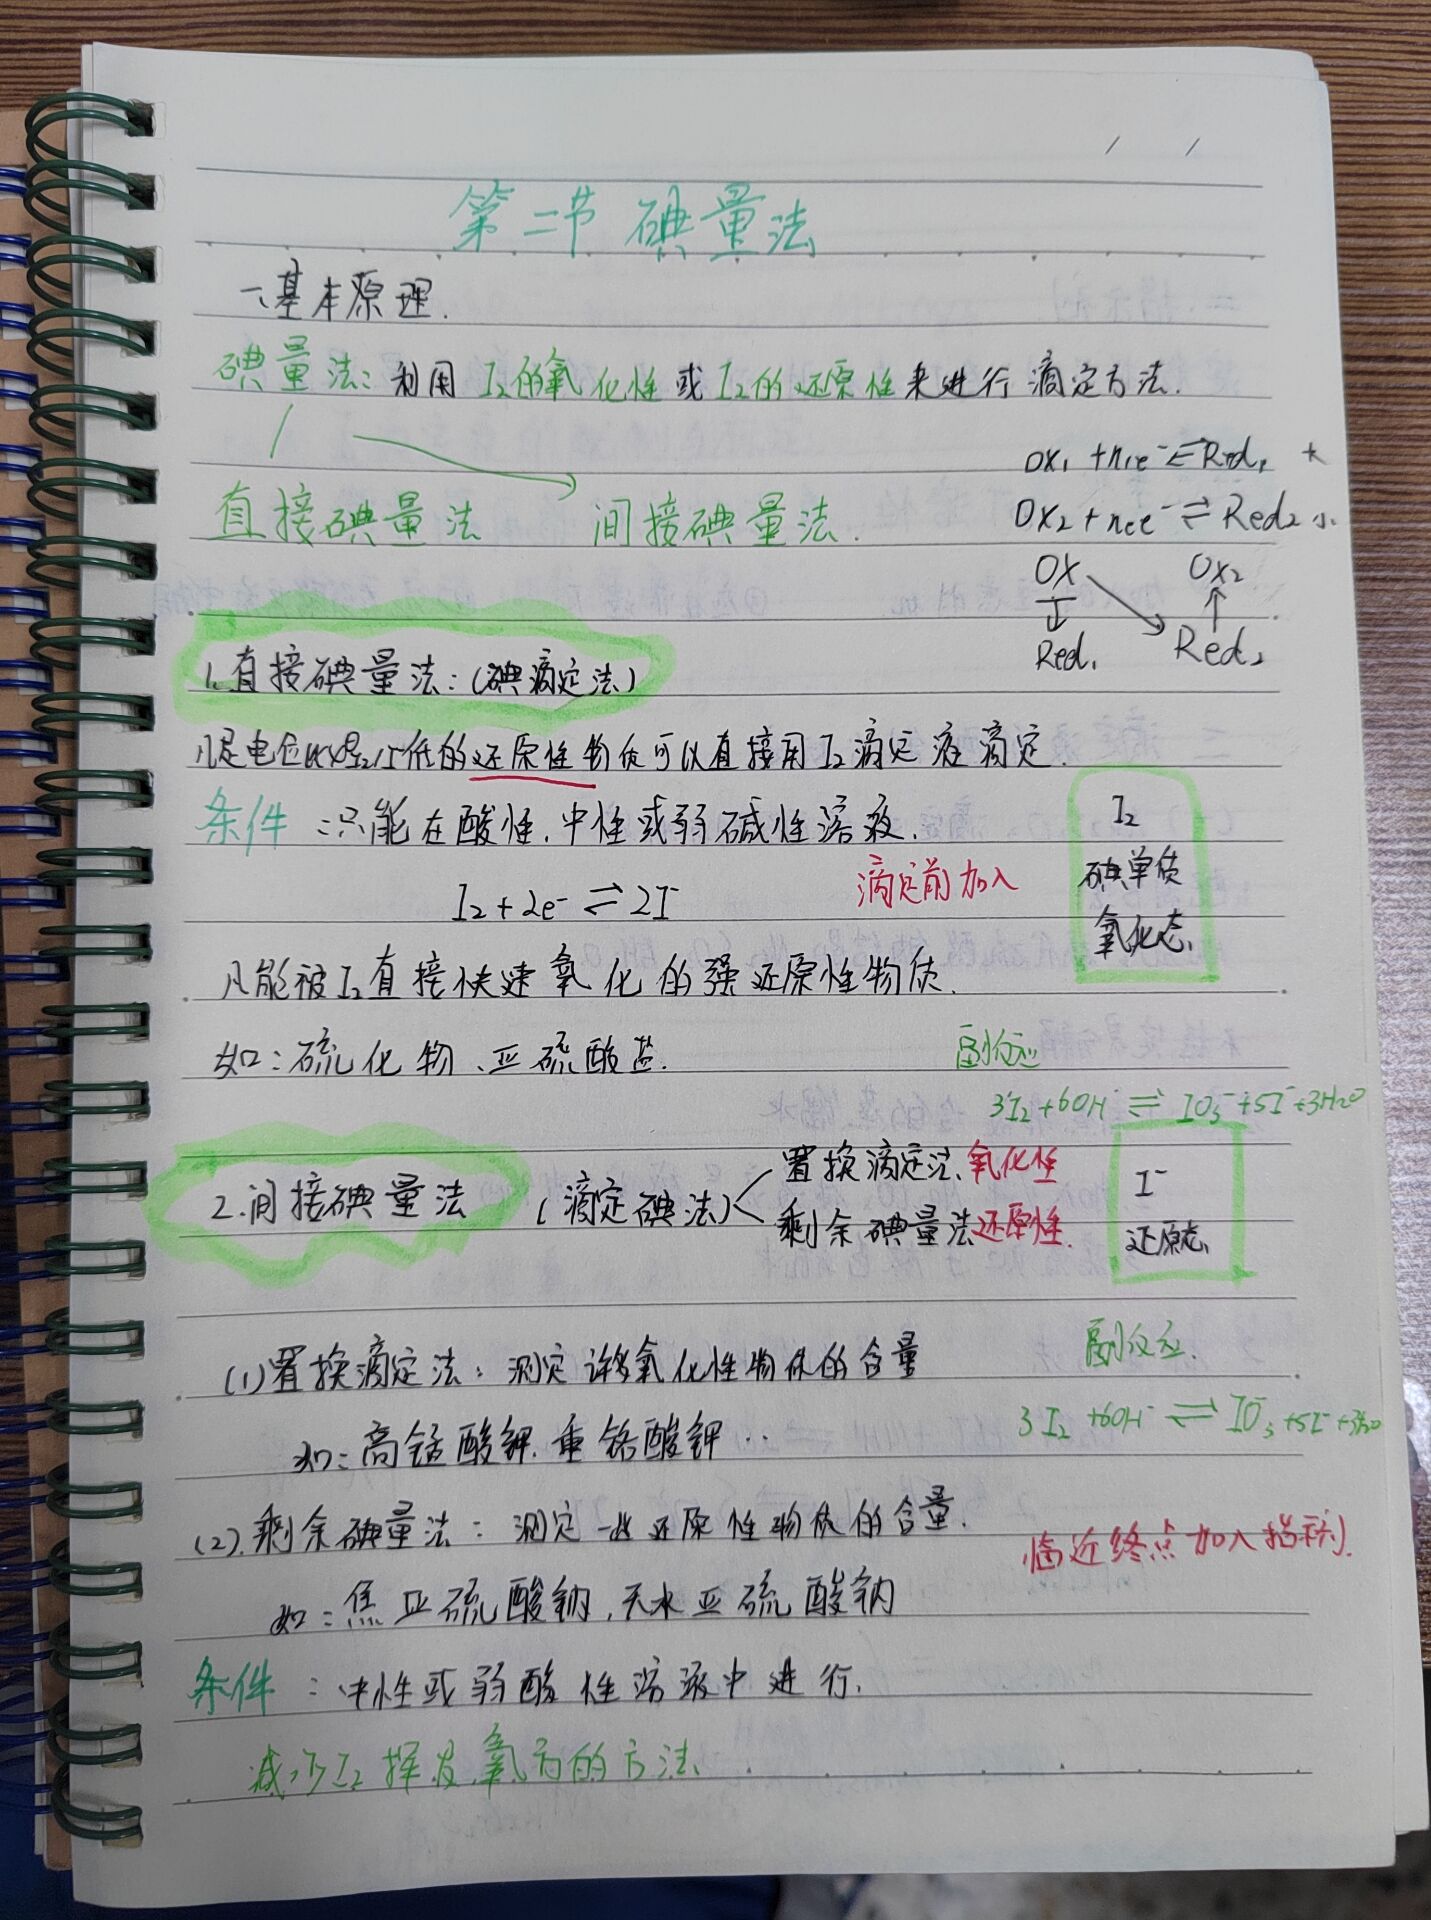 第二节 碘量法
一、基本原理.
碘量法: 利用 I₂的氧化性或 I₂的还原性来进行滴定方法.
OX₁ +n₁e⁻⇌Red₁ 大
直接碘量法 间接碘量法.
OX₂+n₂e⁻⇌Red₂ 小.
OX OX₂
Red₁ Red₂
1.直接碘量法:(碘滴定法)
凡是电位 低的还原性物质可以直接用I₂滴定液滴定.
条件:只能在酸性.中性或弱碱性溶液.
I₂+2e⁻⇌2I⁻ 滴定前加入
I₂
碘单质
氧化态
凡能被I₂直接快速氧化的强还原性物质.
如:硫化物、亚硫酸盐.
副反应
3I₂+6OH⁻⇌IO₃⁻+5I⁻+3H₂O
2.间接碘量法 (滴定碘法)
置换滴定法、氧化性
剩余碘量法 还原性.
I⁻
还原态
(1)置换滴定法:测定许多氧化性物质的含量
副反应.
3I₂+6OH⁻⇌IO₃⁻+5I⁻+3H₂O
如:高锰酸钾.重铬酸钾..
(2).剩余碘量法:测定一些还原性物质的含量.
临近终点加入指示剂.
如:焦亚硫酸钠,无水亚硫酸钠
条件:中性或弱酸性溶液中进行.
减少I₂挥发 的方法、